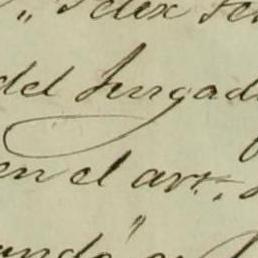 " Felix Fe
del Juzgad
en el art.
"